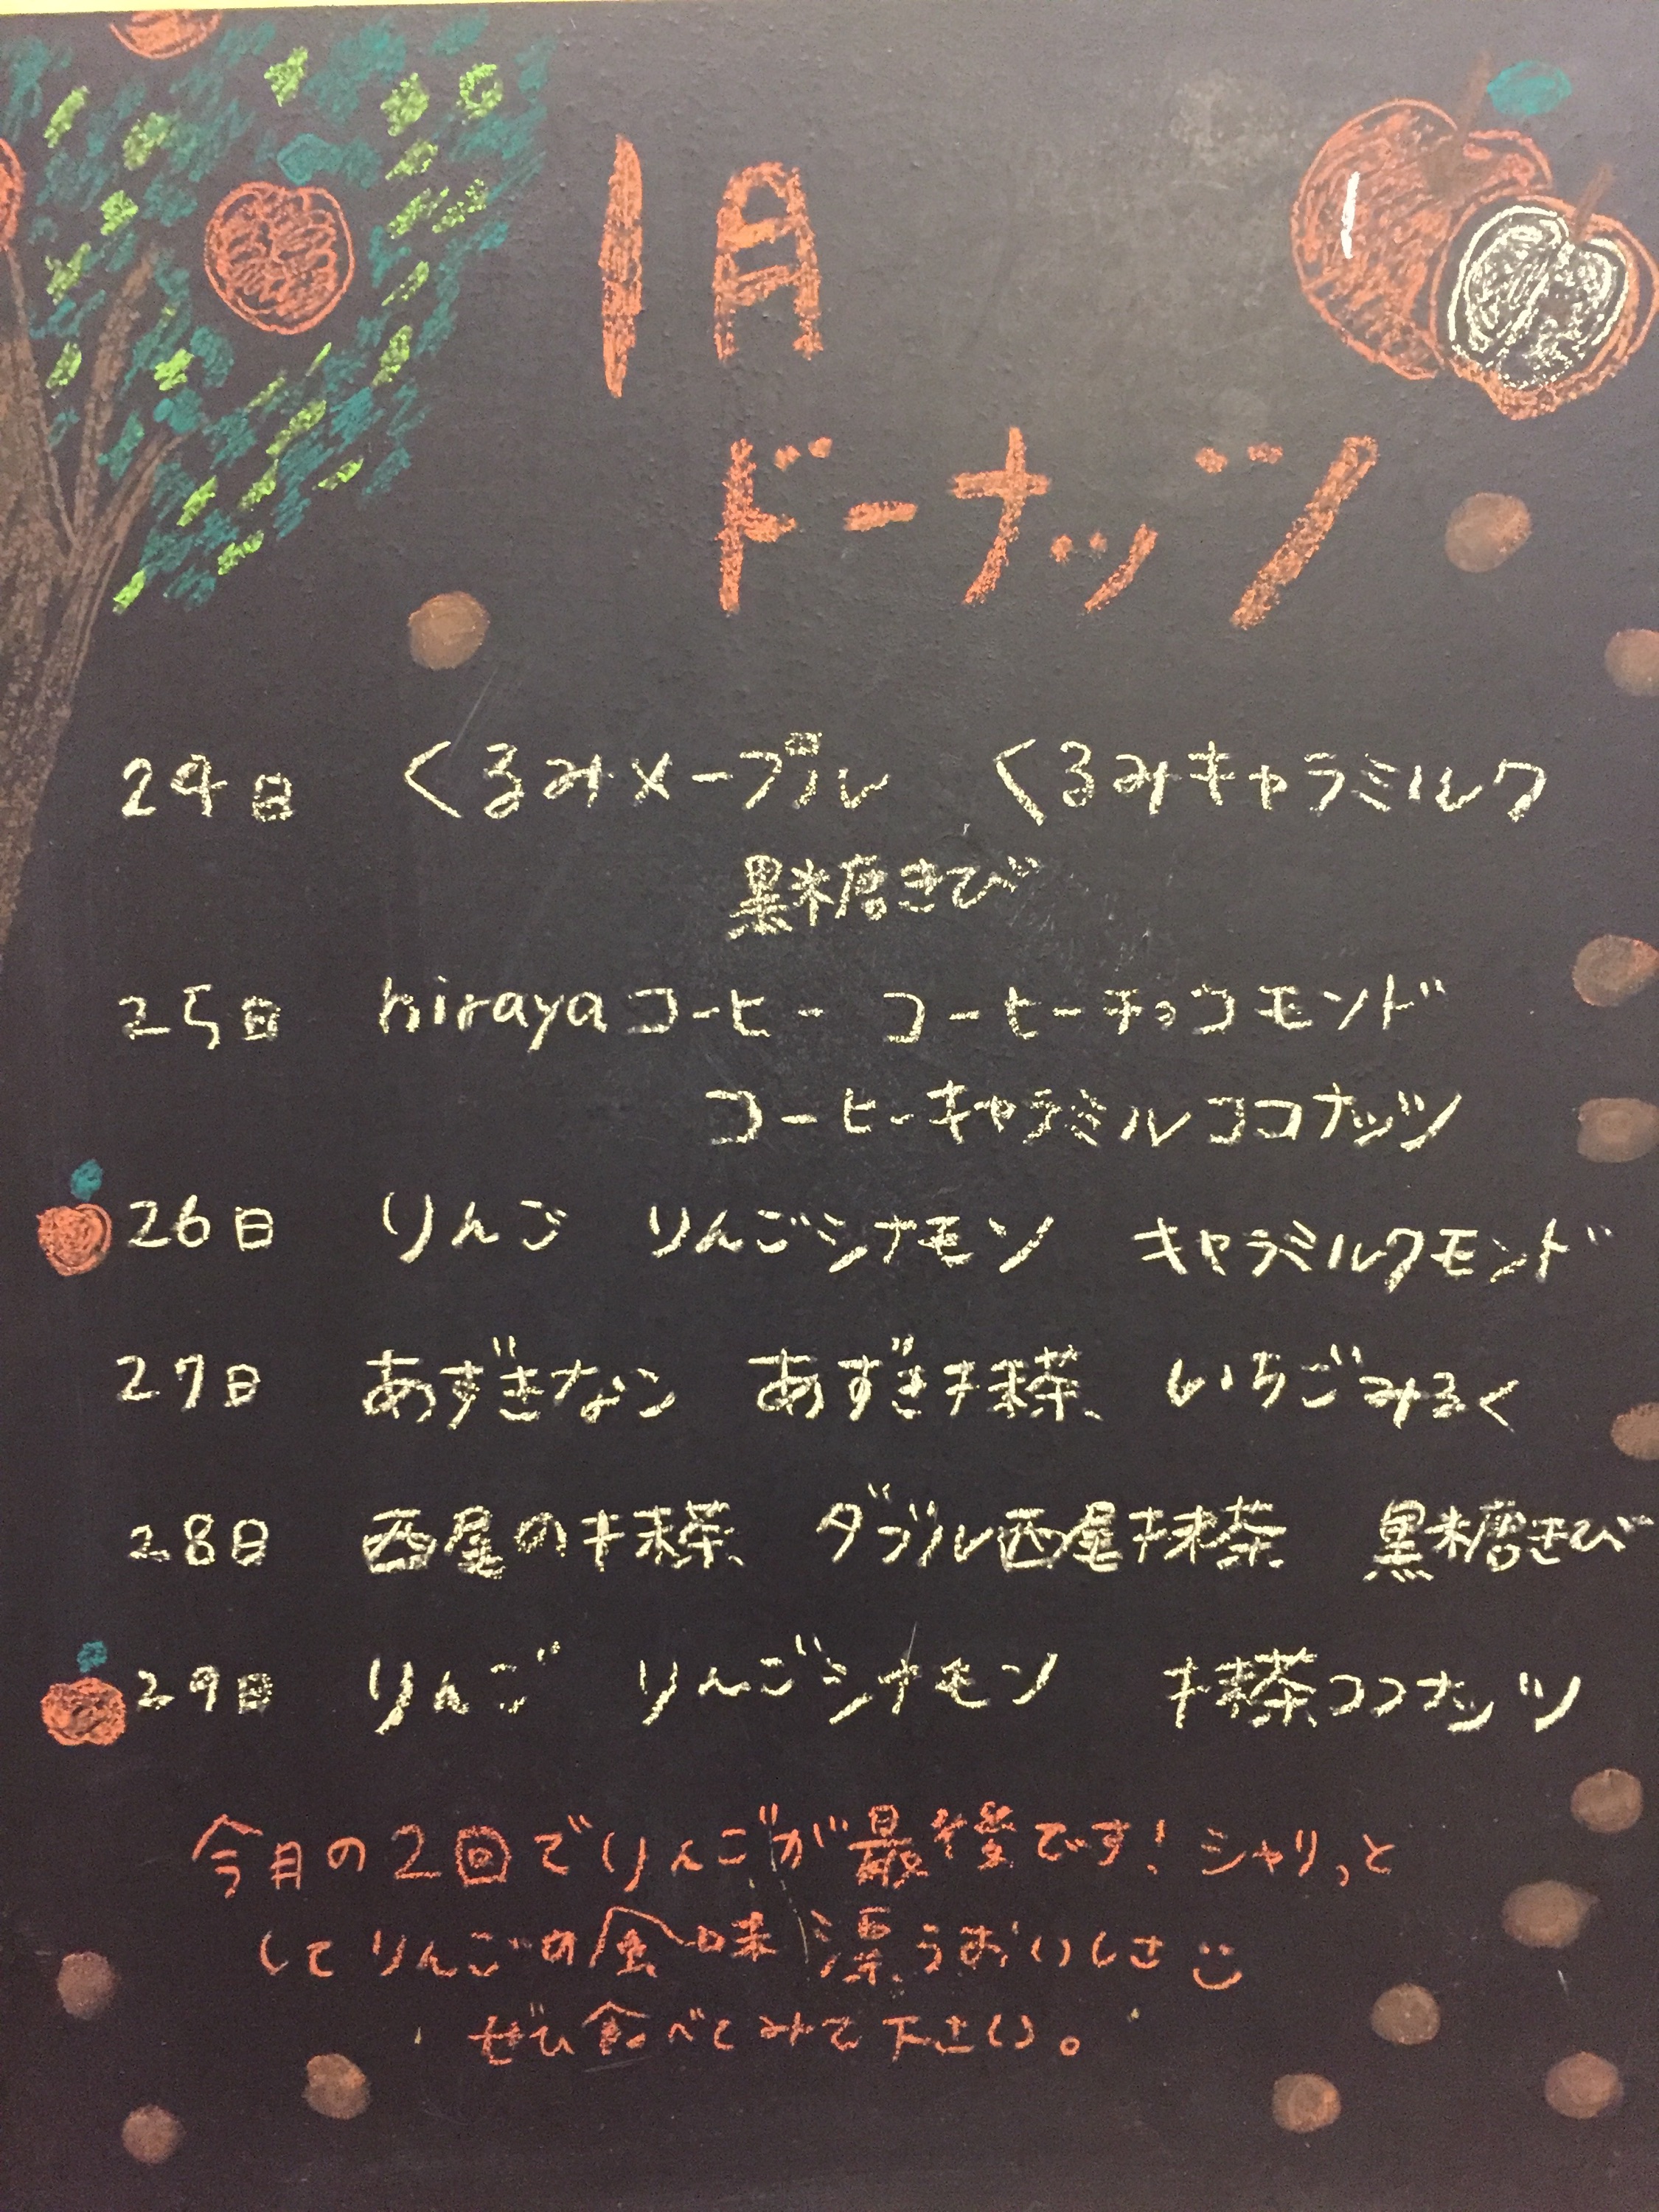 1月
ドーナッツ
24日 くるみメープル くるみキャラミルク
黒糖きび
25日 hirayaコーヒー コーヒーチョコモンド
コーヒーキャラミルクココナッツ
26日 りんご りんごシナモン キャラミルクモンド
27日 あずきなコ あずき抹茶 いちごみるく
28日 西尾の抹茶 ダブル西尾抹茶 黒糖きび
29日 りんご りんごシナモン 抹茶ココナッツ
今月の2回でりんごが最後です！シャリっと
してりんごの風味漂うおいしさ
ぜひ食べてみて下さい。